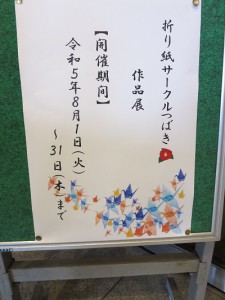 折り紙サークルつばき
作品展
【開催期間】
令和5年8月1日(火)
～31日(木)まで